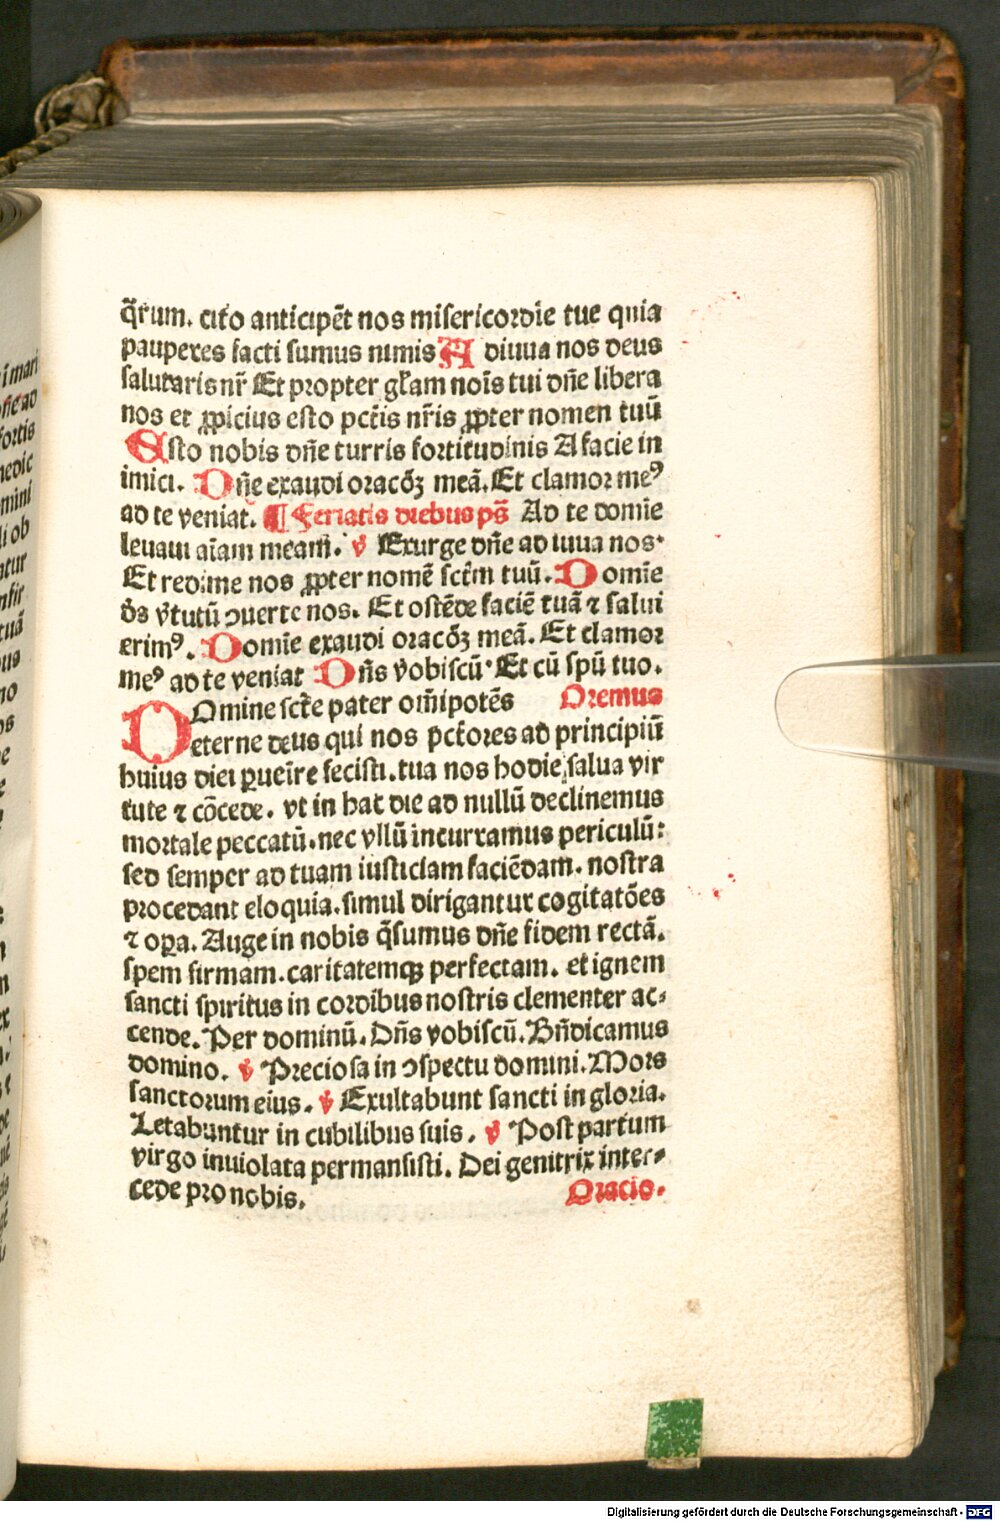 q̄rum. cito anticipēt nos misericordie tue quia
pauperes facti sumus nimis A diuua nos deus
salutaris nr̄ Et propter gl̄am nois̄ tui dn̄e libera
nos et ꝓpicius esto pctīs nr̄is ꝓpter nomen tuū
Esto nobis dn̄e turris fortitudinis A facie in
imici. Dn̄e exaudi oracōꝫ meā. Et clamor meꝰ
ad te veniat. ¶ Feriatis diebus ps̄ Ad te domīe
leuaui aīam meam̄. ℣ Exurge dn̄e ad iuua nos.
Et redime nos ꝓpter nomē sctm̄ tuū. Domīe
ds̄ v̄tutū ↄuerte nos. Et ostēde faciē tuā ⁊ salui
erimꝰ. Domīe exaudi oracōꝫ meā. Et clamor
meꝰ ad te veniat Dn̄s vobiscū. Et cū spū tuo.
DOmine scte pater om̄ipotēs Oremus
eterne deus qui nos pctores ad principiū
huius diei ꝑuenīre fecisti. tua nos hodie salua vir
tute ⁊ cōcede. vt in hac die ad nullū declinemus
mortale peccatū. nec vllū incurramus periculū:
sed semper ad tuam iusticiam faciēdam. nostra
procedant eloquia. simul dirigantur cogitatōes
⁊ oꝑa. Auge in nobis q̄sumus dn̄e fidem rectā.
spem firmam. caritatemqꝫ perfectam. et ignem
sancti spiritus in cordibus nostris clementer ac⸗
cende. Per dominū. Dn̄s vobiscū. Bn̄dicamus
domino. ℣ Preciosa in ↄspectu domini. Mors
sanctorum eius. ℣ Exultabunt sancti in gloria.
Letabuntur in cubilibus suis. ℣ Post partum
virgo inuiolata permansisti. Dei genitrix inter⸗
cede pro nobis. Oracio.
Digitalisierung gefördert durch die Deutsche Forschungsgemeinschaft - DFG